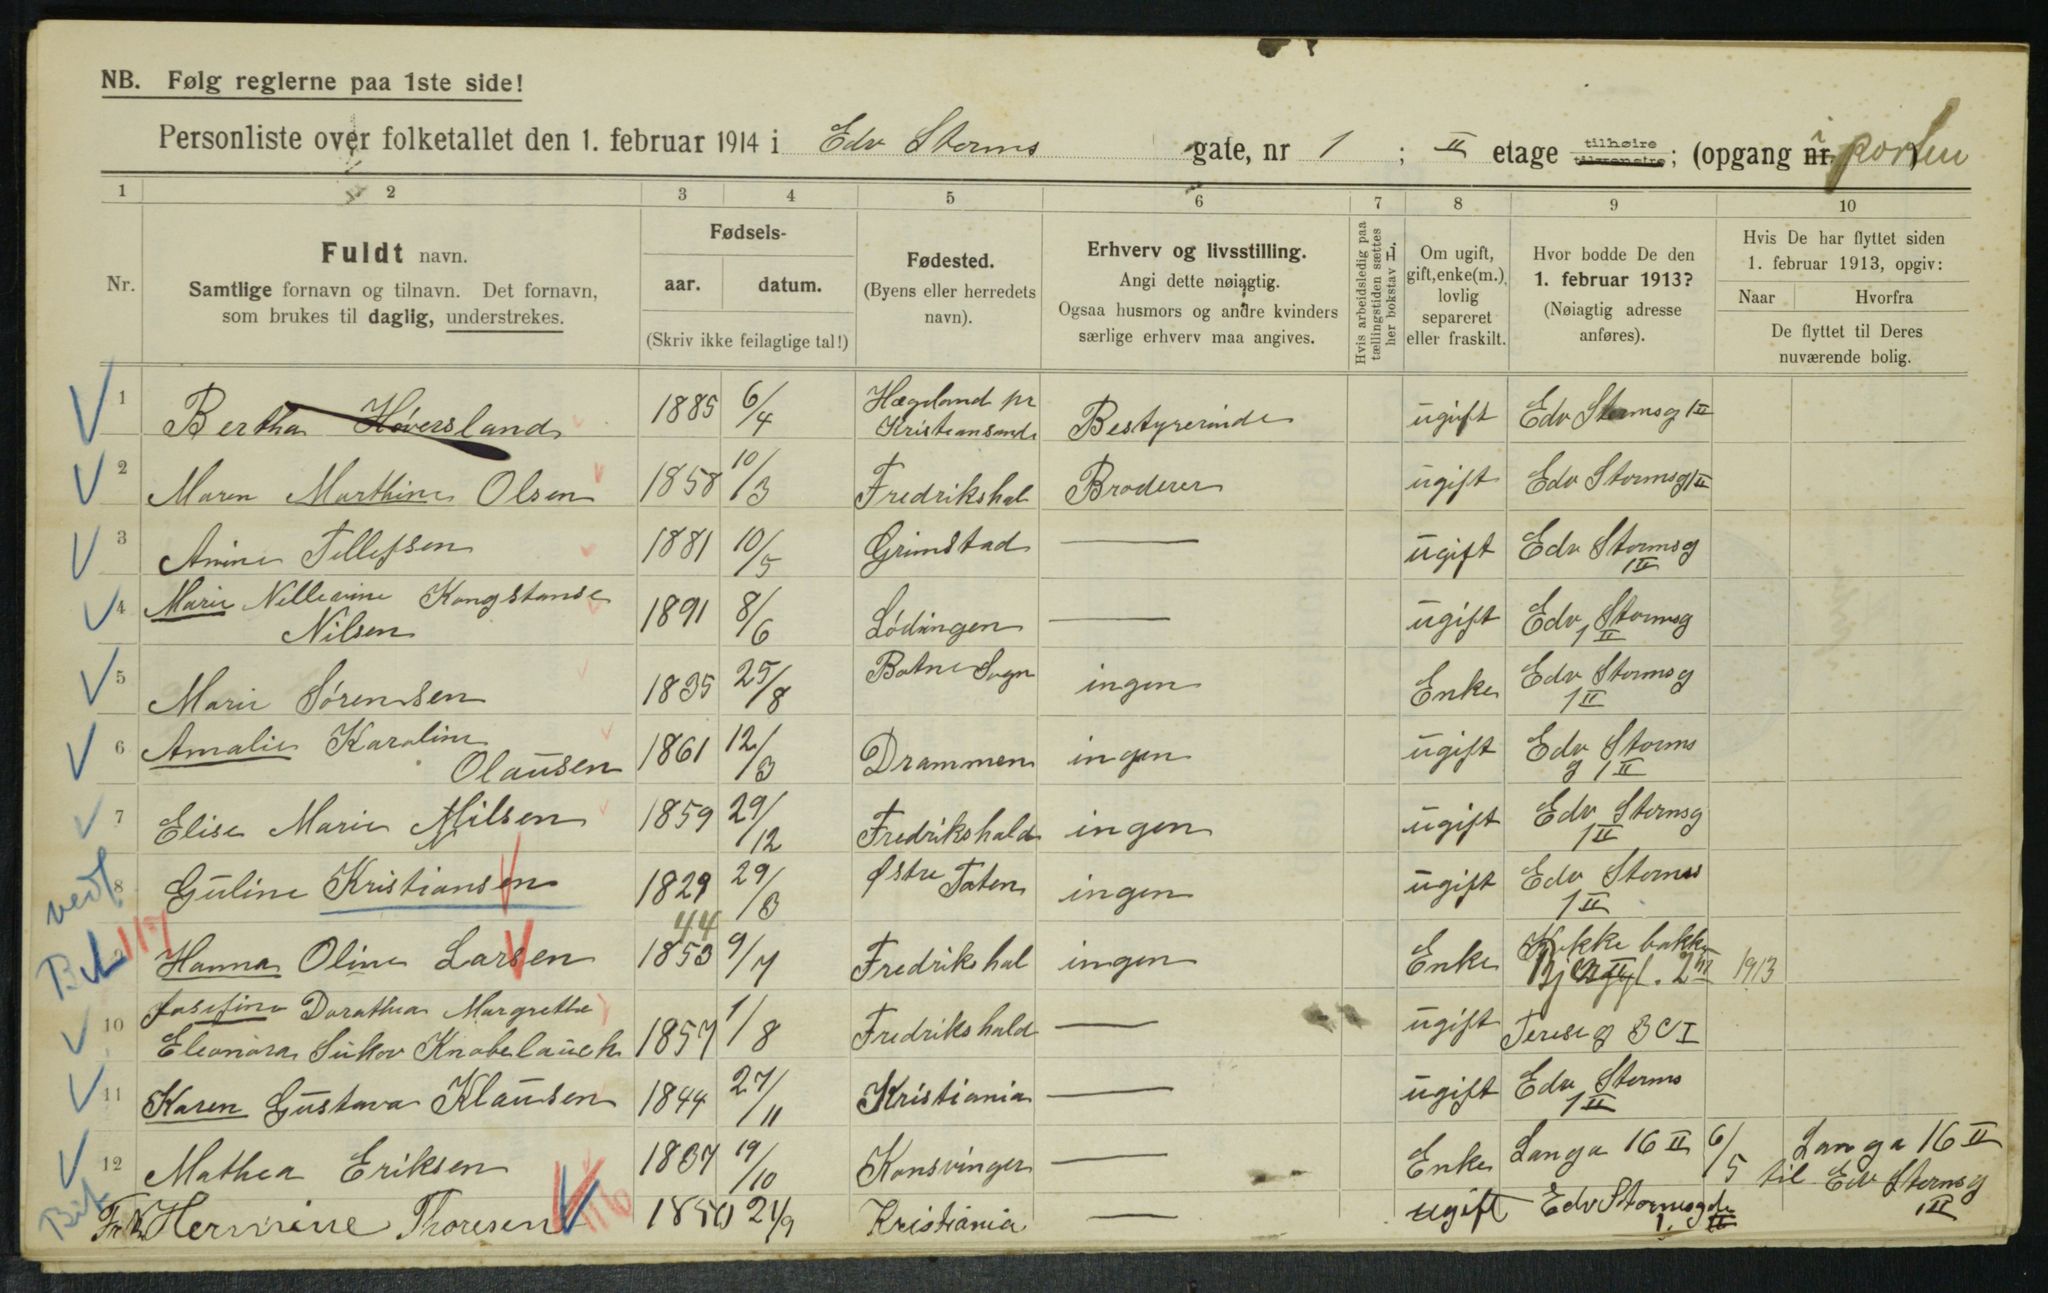 NB. Følg reglerne paa 1ste side!
Personliste over folketallet den 1. februar 1914 i Edv Storms gate, nr 1 ; II etage tilhøire ; (opgang nr. i porten
1 2 3 4 5 6 7 8 9 10
Nr.
Fuldt navn.
Samtlige fornavn og tilnavn. Det fornavn,
som brukes til daglig, understrekes.
Fødsels-
aar. datum.
(Skriv ikke feilagtige tal!)
Fødested.
(Byens eller herredets
navn).
Erhverv og livsstilling.
Angi dette nøiagtig.
Ogsaa husmors og andre kvinders
særlige erhverv maa angives.
Hvis arbeidsledig paa
tællingstiden sættes
her bokstav L.
Om ugift,
gift, enke(m.),
lovlig
separeret
eller fraskilt.
Hvor bodde De den
1. februar 1913?
(Nøiagtig adresse
anføres).
Hvis De har flyttet siden
1. februar 1913, opgiv:
Naar Hvorfra
De flyttet til Deres
nuværende bolig.
1 Bertha Høversland 1885 6/4 Hægeland pr Kristiansand Bestyrerinde ugift Edv Stormsg 1 II
2 Maren Marthine Olsen 1858 10/3 Fredrikshal Broderer ugift Edv Stormsg 1 II
3 Anine Tellefsen 1881 10/5 Grimstad — ugift Edv Stormsg 1 II
4 Marie Nilsen 1891 8/6 Lødingen — ugift Edv Stormsg 1 II
5 Marie Sørensen 1835 25/8 Botne Sogn ingen Enke Edv Stormsg 1 II
6 Amalie Karoline Olausen 1861 12/3 Drammen ingen ugift Edv Storms g 1 II
7 Elise Marie Nilsen 1859 29/12 Fredrikshald ingen ugift Edv Stormsg 1 II
8 Guline Kristiansen 1829 29/3 Østre Toten ingen ugift Edv Storms 1 II
9 Hanna Oline Larsen 1853 44 9/7 Fredrikshal ingen Enke 1913
10 Josefine Dorathea Margrethe
Eleonora Sukov Knobelauch 1857 1/8 Fredrikshald — ugift Tereseg 3 C I
11 Karen Gustava Klausen 1844 27/11 Kristiania — ugift Edv Storms 1 II
12 Mathea Eriksen 1837 19/10 Konsvinger — Enke Langa 16 II 6/5 Langa 16 II
til Edv Stormsg 1 II
Hermine Thoresen 24/9 Kristiania — ugift Edv Stormsgde 1. II